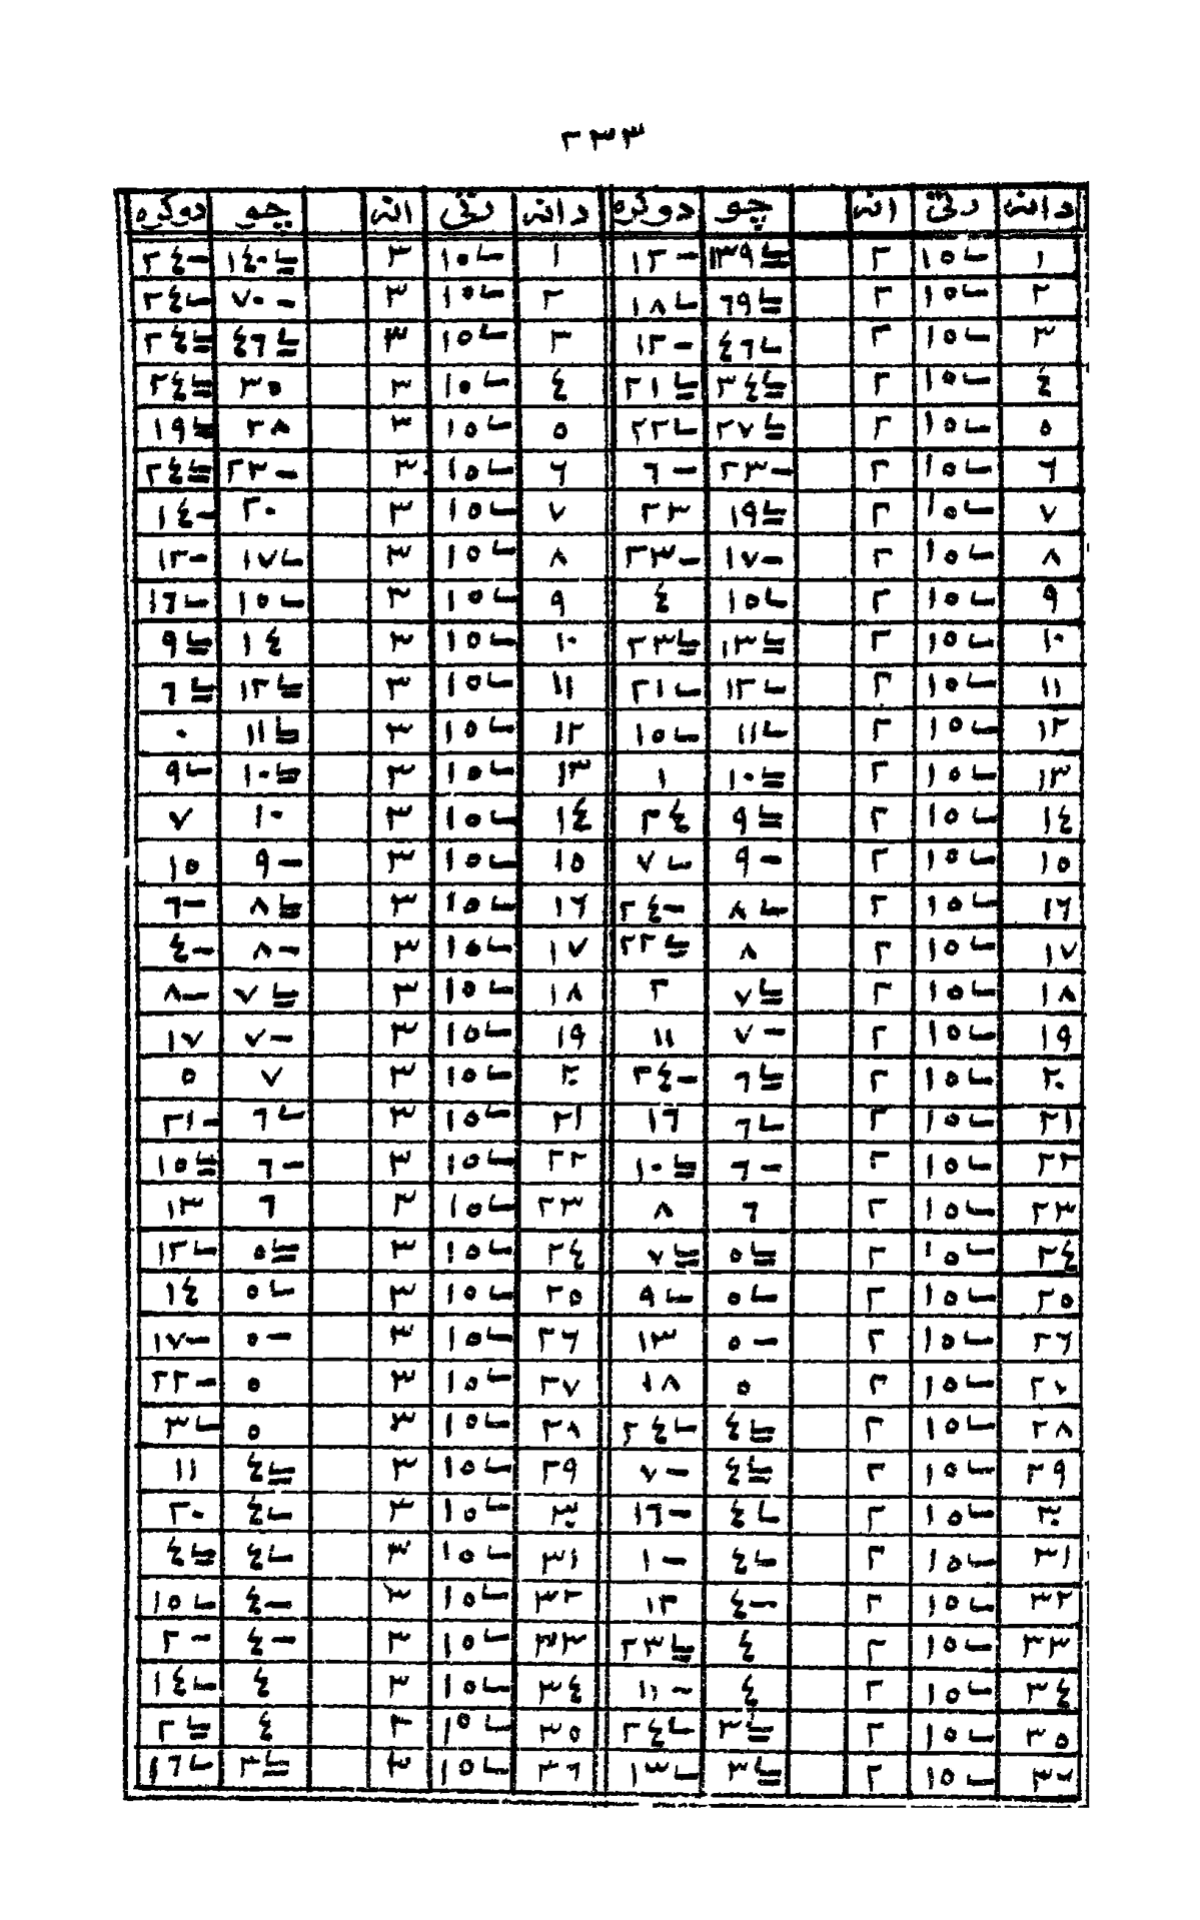 ٢٣٣
دانه رتي انه چو دوكره دانه رتي انه چو دوكره
١ ١٥ ٢ ١٣٩ -١٢ ١ ١٥ ٣ ١٤٠ -٢٤
٢ ١٥ ٢ ٦٩ ١٨ ٢ ١٥ ٣ -٧٠ ٢٤
٣ ١٥ ٢ ٤٦ -١٢ ٣ ١٥ ٣ ٤٦ ٢٤
٤ ١٥ ٢ ٣٤ ٢١ ٤ ١٥ ٣ ٣٥ ٢٤
٥ ١٥ ٢ ٢٧ ٢٢ ٥ ١٥ ٣ ٢٨ ١٩
٦ ١٥ ٢ -٢٣ -٦ ٦ ١٥ ٣ -٢٣ ٢٤
٧ ١٥ ٢ ١٩ ٢٣ ٧ ١٥ ٣ ٢٠ -١٤
٨ ١٥ ٢ -١٧ -٢٣ ٨ ١٥ ٣ ١٧ -١٢
٩ ١٥ ٢ ١٥ ٤ ٩ ١٥ ٣ ١٥ ١٦
١٠ ١٥ ٢ ١٣ ٢٣ ١٠ ١٥ ٣ ١٤ ٩
١١ ١٥ ٢ ١٢ ٢١ ١١ ١٥ ٣ ١٢ ٦
١٢ ١٥ ٢ ١١ ١٥ ١٢ ١٥ ٣ ١١ ٠
١٣ ١٥ ٢ ١٠ ١ ١٣ ١٥ ٣ ١٠ ٩
١٤ ١٥ ٢ ٩ ٢٤ ١٤ ١٥ ٣ ١٠ ٧
١٥ ١٥ ٢ -٩ ٧ ١٥ ١٥ ٣ -٩ ١٥
١٦ ١٥ ٢ ٨ -٢٤ ١٦ ١٥ ٣ ٨ -٦
١٧ ١٥ ٢ ٨ ٢٢ ١٧ ١٥ ٣ -٨ -٤
١٨ ١٥ ٢ ٧ ٢ ١٨ ١٥ ٣ ٧ -٨
١٩ ١٥ ٢ -٧ ١١ ١٩ ١٥ ٣ -٧ ١٧
٢٠ ١٥ ٢ ٦ -٢٤ ٢٠ ١٥ ٣ ٧ ٥
٢١ ١٥ ٢ ٦ ١٦ ٢١ ١٥ ٣ ٦ -٢١
٢٢ ١٥ ٢ -٦ ١٠ ٢٢ ١٥ ٣ -٦ ١٥
٢٣ ١٥ ٢ ٦ ٨ ٢٣ ١٥ ٣ ٦ ١٣
٢٤ ١٥ ٢ ٥ ٧ ٢٤ ١٥ ٣ ٥ ١٢
٢٥ ١٥ ٢ ٥ ٩ ٢٥ ١٥ ٣ ٥ ١٤
٢٦ ١٥ ٢ -٥ ١٣ ٢٦ ١٥ ٣ -٥ -١٧
٢٧ ١٥ ٢ ٥ ١٨ ٢٧ ١٥ ٣ ٥ -٢٢
٢٨ ١٥ ٢ ٤ ٢٤ ٢٨ ١٥ ٣ ٥ ٣
٢٩ ١٥ ٢ ٤ -٧ ٢٩ ١٥ ٣ ٤ ١١
٣٠ ١٥ ٢ ٤ -١٦ ٣٠ ١٥ ٣ ٤ ٢٠
٣١ ١٥ ٢ ٤ -١ ٣١ ١٥ ٣ ٤ ٤
٣٢ ١٥ ٢ -٤ ١٢ ٣٢ ١٥ ٣ -٤ ١٥
٣٣ ١٥ ٢ ٤ ٢٣ ٣٣ ١٥ ٣ -٤ -٢
٣٤ ١٥ ٢ ٤ -١١ ٣٤ ١٥ ٣ ٤ ١٤
٣٥ ١٥ ٢ ٣ ٢٤ ٣٥ ١٥ ٣ ٤ ٢
٣٦ ١٥ ٢ ٣ ١٣ ٣٦ ١٥ ٣ ٣ ١٦